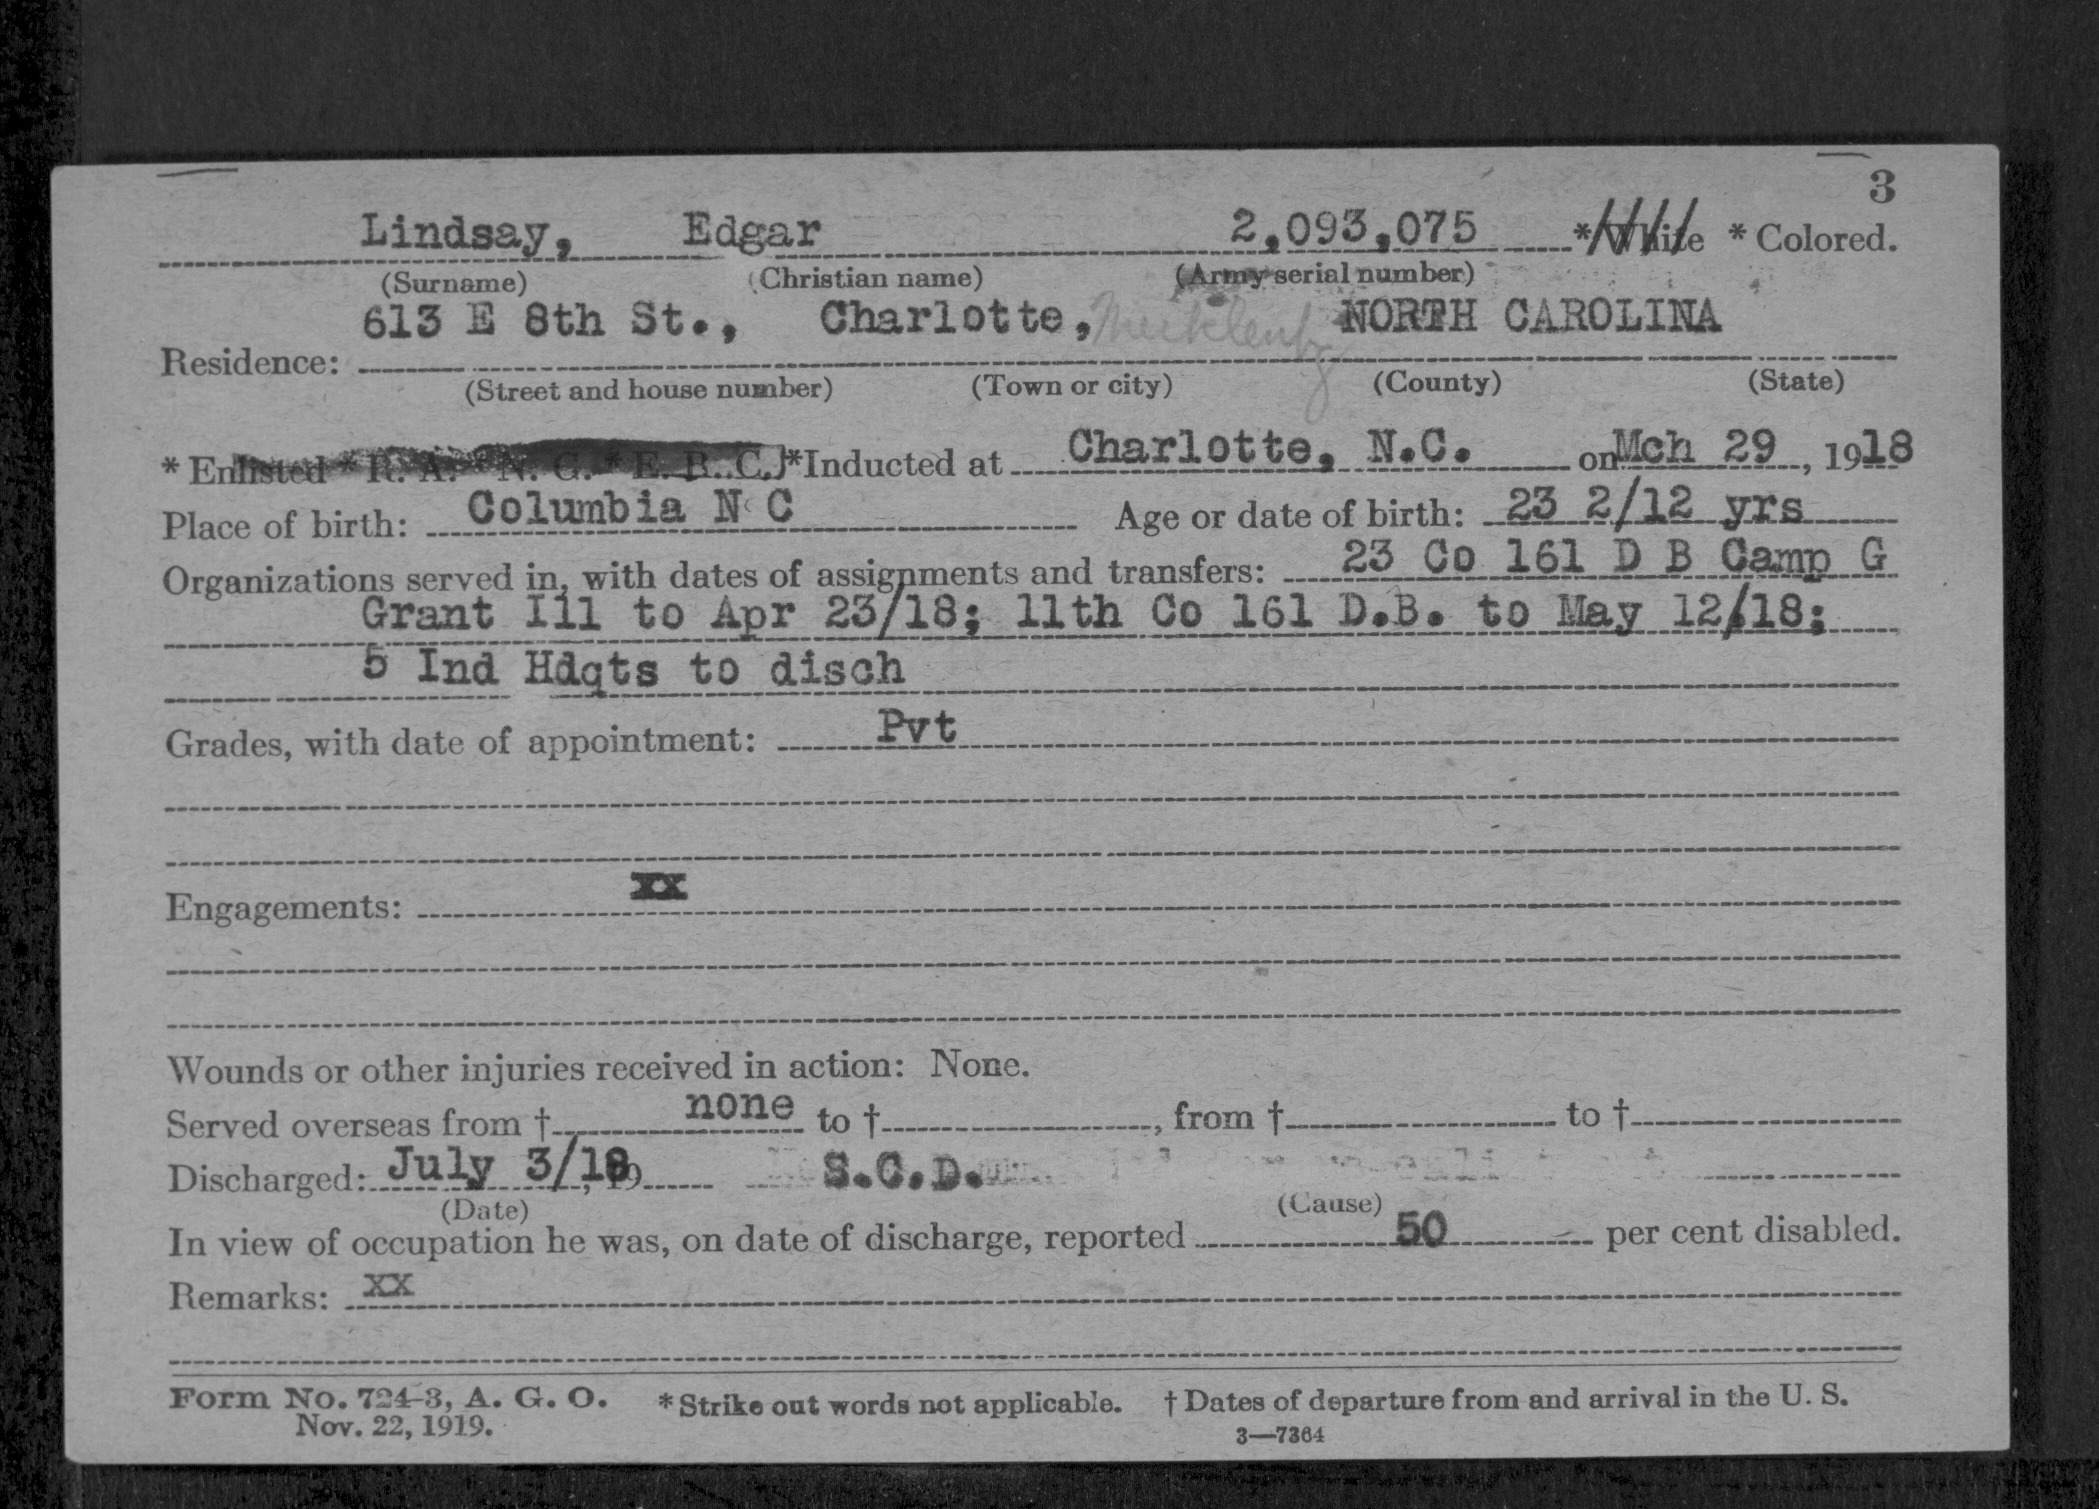 3
Lindsay, Edgar 2,093,075 * White * Colored.
(Surname) (Christian name) (Army serial number)
613 E 8th St., Charlotte, Mecklenbg NORTH CAROLINA
Residence:
(Street and house number) (Town or city) (County) (State)
* Enlisted * R. A. * N. G. * E. R. C.] *Inducted at Charlotte, N.C. on Mch 29, 1918
Place of birth: Columbia N C Age or date of birth: 23 2/12 yrs
Organizations served in, with dates of assignments and transfers: 23 Co 161 D B Camp G
Grant Ill to Apr 23/18; 11th Co 161 D.B. to May 12/18;
5 Ind Hdqts to disch
Grades, with date of appointment: Pvt
Engagements: xx
Wounds or other injuries received in action: None.
Served overseas from † none to †, from † to †
Discharged: July 3/18, 19 S.C.D.
(Date) (Cause)
In view of occupation he was, on date of discharge, reported 50 per cent disabled.
Remarks: xx
Form No. 724-3, A. G. O. * Strike out words not applicable. † Dates of departure from and arrival in the U. S.
Nov. 22, 1919. 3—7364